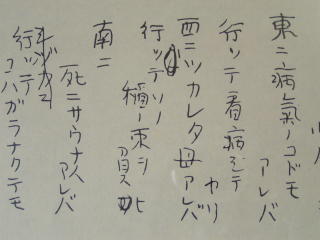 東ニ病氣ノコドモ
アレバ
行ッテ看病シテ
ヤリ
西ニツカレタ母アレバ
行ッテソノ
稲ノ束ヲ負ヒ
南ニ
死ニサウナ人
アレバ
行ッテ
コハガラナクテモ